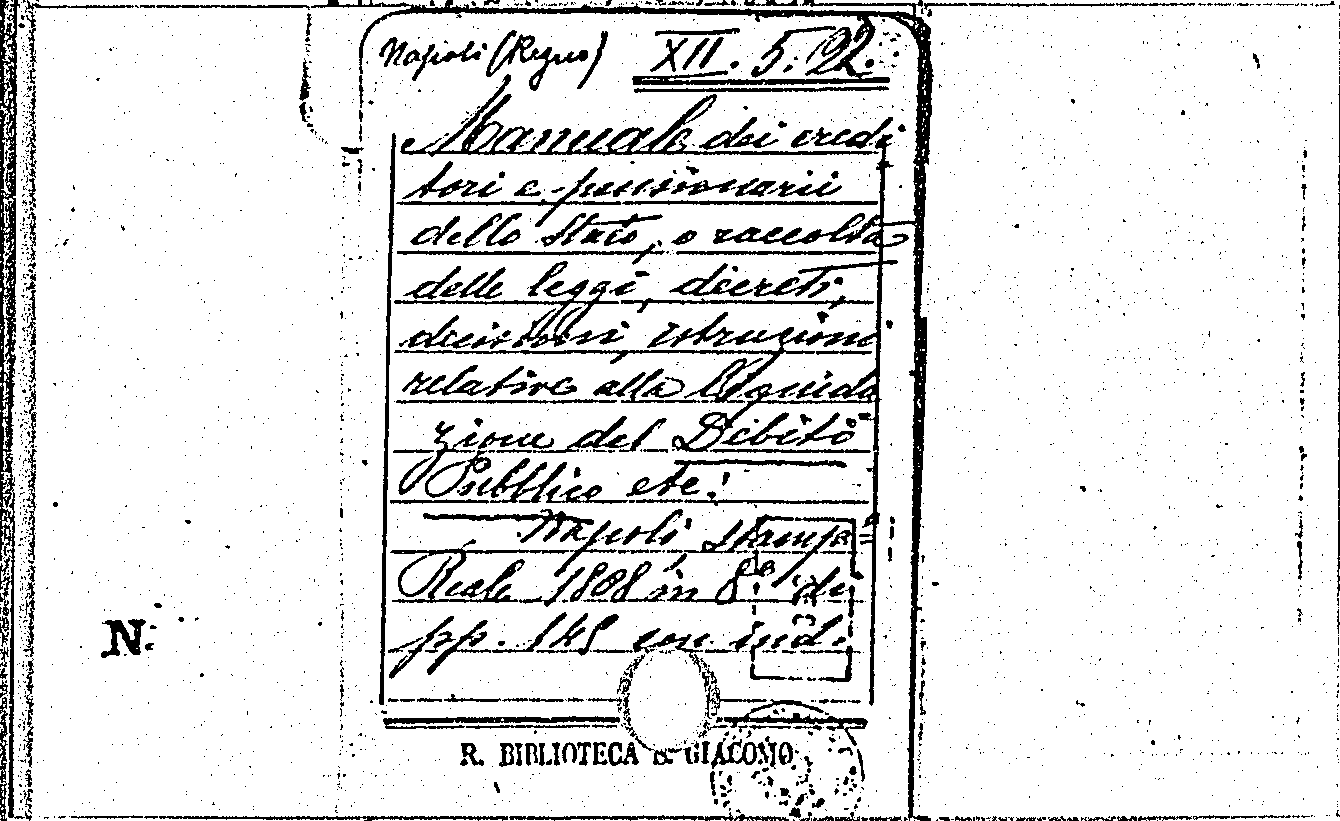 Napoli (Regno) XII. 5. 92.
Manuale dei credi
tori e pensionarii
dello Stato, o raccolta
delle leggi, decreti,
decisioni, istruzioni
relative alla liquida
zione del Debito
Pubblico etc.
Napoli stampa=
Reale 1808 in 8° di
pp. 145 con ind.
N.
R. BIBLIOTECA S. GIACOMO